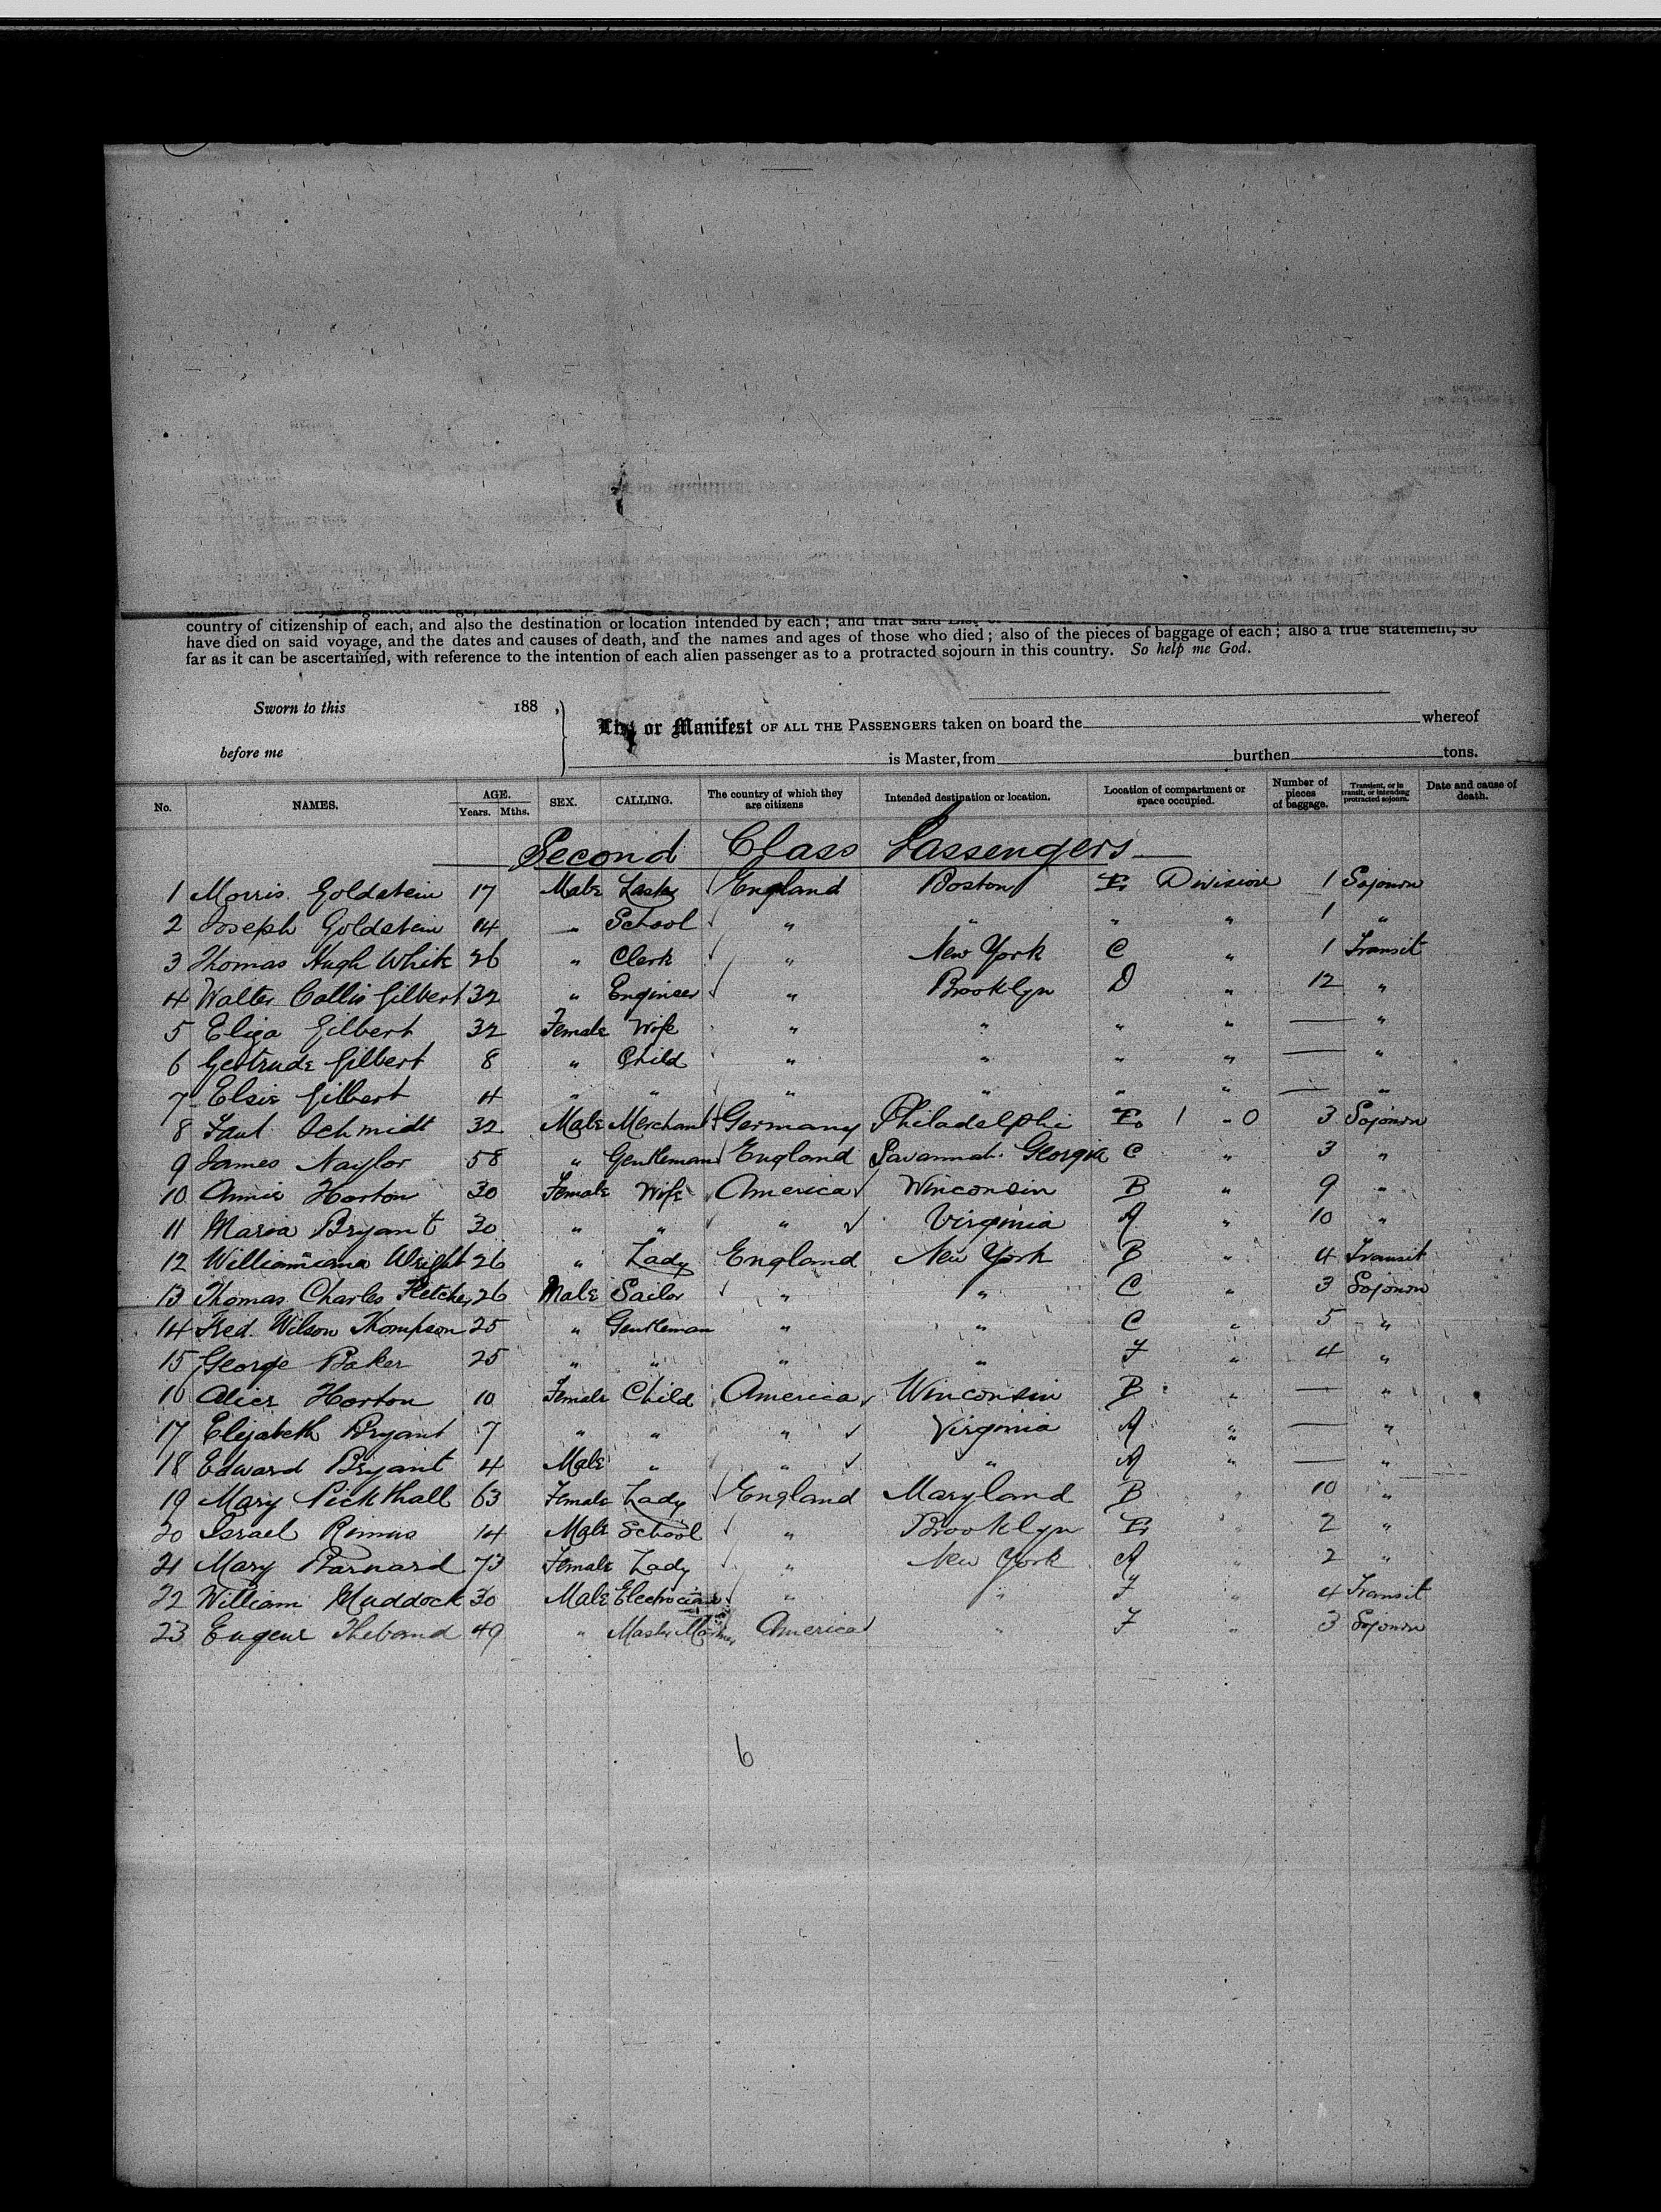 country of citizenship of each, and also the destination or location intended by each; and that said List
have died on said voyage, and the dates and causes of death, and the names and ages of those who died; also of the pieces of baggage of each; also a true statement, so
far as it can be ascertained, with reference to the intention of each alien passenger as to a protracted sojourn in this country. So help me God.
Sworn to this 188 ,
List or Manifest OF ALL THE PASSENGERS taken on board the whereof
before me
is Master, from burthen tons.
No. NAMES. AGE. Years. Mths. SEX. CALLING. The country of which they are citizens Intended destination or location. Location of compartment or space occupied. Number of pieces of baggage. Transient, or in transit, or intending protracted sojourn. Date and cause of death.
Second Class Passengers
1 Morris Goldstein 17 Male England Boston E Division 1 Sojourn
2 Joseph Goldstein 14 " School " " " " 1 "
3 Thomas Hugh White 26 " Clerk " New York C " 1 Transit
4 Walter Collis Gilbert 32 " Engineer " Brooklyn D " 12 "
5 Eliza Gilbert 32 Female Wife " " " " — "
6 Gertrude Gilbert 8 " Child " " " " — "
7 Elsie Gilbert 4 " " " " " " — "
8 Paul Schmidt 32 Male Merchant Germany Philadelphi E 3 Sojourn
9 James Naylor 58 " Gentleman England Savannah Georgia C " 3 "
10 Annie Horton 30 Female Wife America Winconsin B " 9 "
11 Maria Bryant 30 " " " Virginia A " 10 "
12 Williamiana Wright 26 " Lady England New York B " 4 Transit
13 Thomas Charles Fletcher 26 Male Sailor " " C " 3 Sojourn
14 Fred. Wilson Thompson 25 " Gentleman " " C " 5 "
15 George Baker 25 " " " " F " 4 "
16 Alice Horton 10 Female Child America Winconsin B " — "
17 Elizabeth Bryant 7 " " " Virginia A " — "
18 Edward Bryant 4 Male " " " A " — "
19 Mary Pickthall 63 Female Lady England Maryland B " 10 "
20 Israel Rimus 14 Male School " Brooklyn E " 2 "
21 Mary Barnard 73 Female Lady " New York A " 2 "
22 William Maddock 30 Male Electrician " " F " 4 Transit
23 Eugene Thebaud 49 " Master Mariner America " F " 3 Sojourn
6